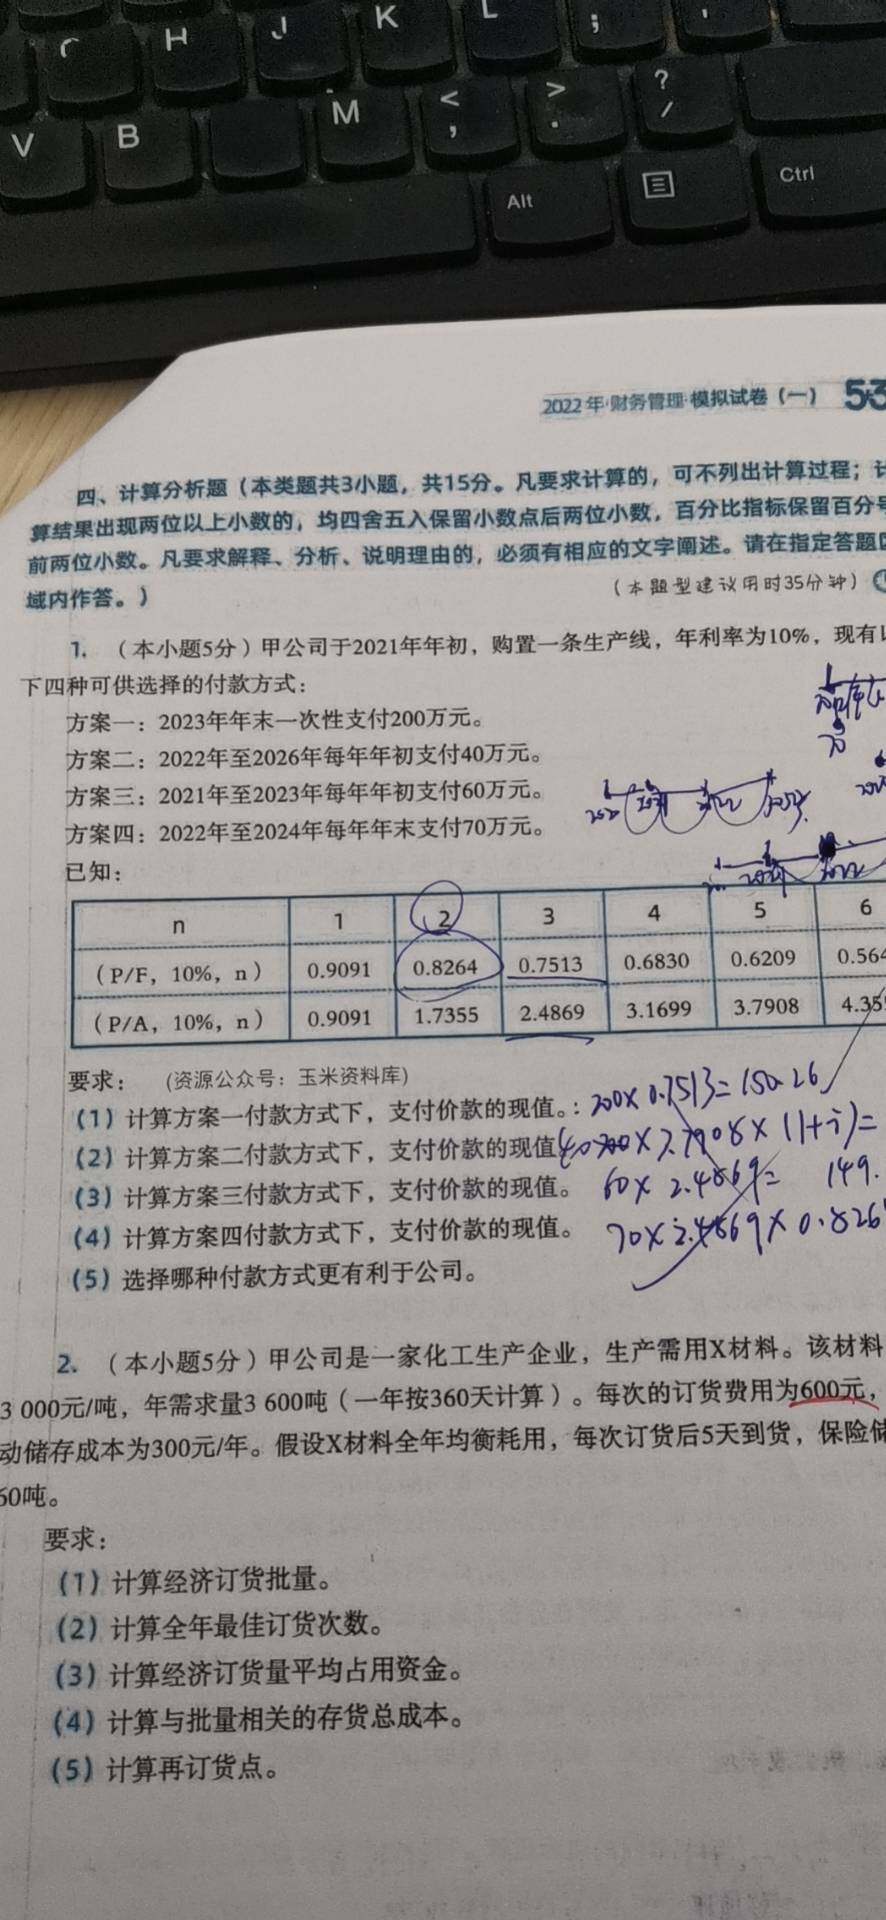 H J K L ;
V B M < , > . ? /
Alt Ctrl
2022年·财务管理·模拟试卷（一） 53
四、计算分析题（本类题共3小题，共15分。凡要求计算的，可不列出计算过程；计
算结果出现两位以上小数的，均四舍五入保留小数点后两位小数，百分比指标保留百分号
前两位小数。凡要求解释、分析、说明理由的，必须有相应的文字阐述。请在指定答题区
域内作答。）
（本题型建议用时35分钟）
1. （本小题5分）甲公司于2021年年初，购置一条生产线，年利率为10%，现有以
下四种可供选择的付款方式：
方案一：2023年年末一次性支付200万元。
方案二：2022年至2026年每年年初支付40万元。
方案三：2021年至2023年每年年初支付60万元。
方案四：2022年至2024年每年年末支付70万元。
已知：
n 1 2 3 4 5 6
（P/F，10%，n） 0.9091 0.8264 0.7513 0.6830 0.6209 0.564
（P/A，10%，n） 0.9091 1.7355 2.4869 3.1699 3.7908 4.355
要求： (资源公众号：玉米资料库)
（1）计算方案一付款方式下，支付价款的现值。: 200×0.7513=150.26
（2）计算方案二付款方式下，支付价款的现值 ×3.7908×(1+i)=
（3）计算方案三付款方式下，支付价款的现值。 60×2.4869= 149.
（4）计算方案四付款方式下，支付价款的现值。 70×2.4869×0.826
（5）选择哪种付款方式更有利于公司。
2. （本小题5分）甲公司是一家化工生产企业，生产需用X材料。该材料
3 000元/吨，年需求量3 600吨（一年按360天计算）。每次的订货费用为600元，
动储存成本为300元/年。假设X材料全年均衡耗用，每次订货后5天到货，保险储
60吨。
要求：
（1）计算经济订货批量。
（2）计算全年最佳订货次数。
（3）计算经济订货量平均占用资金。
（4）计算与批量相关的存货总成本。
（5）计算再订货点。